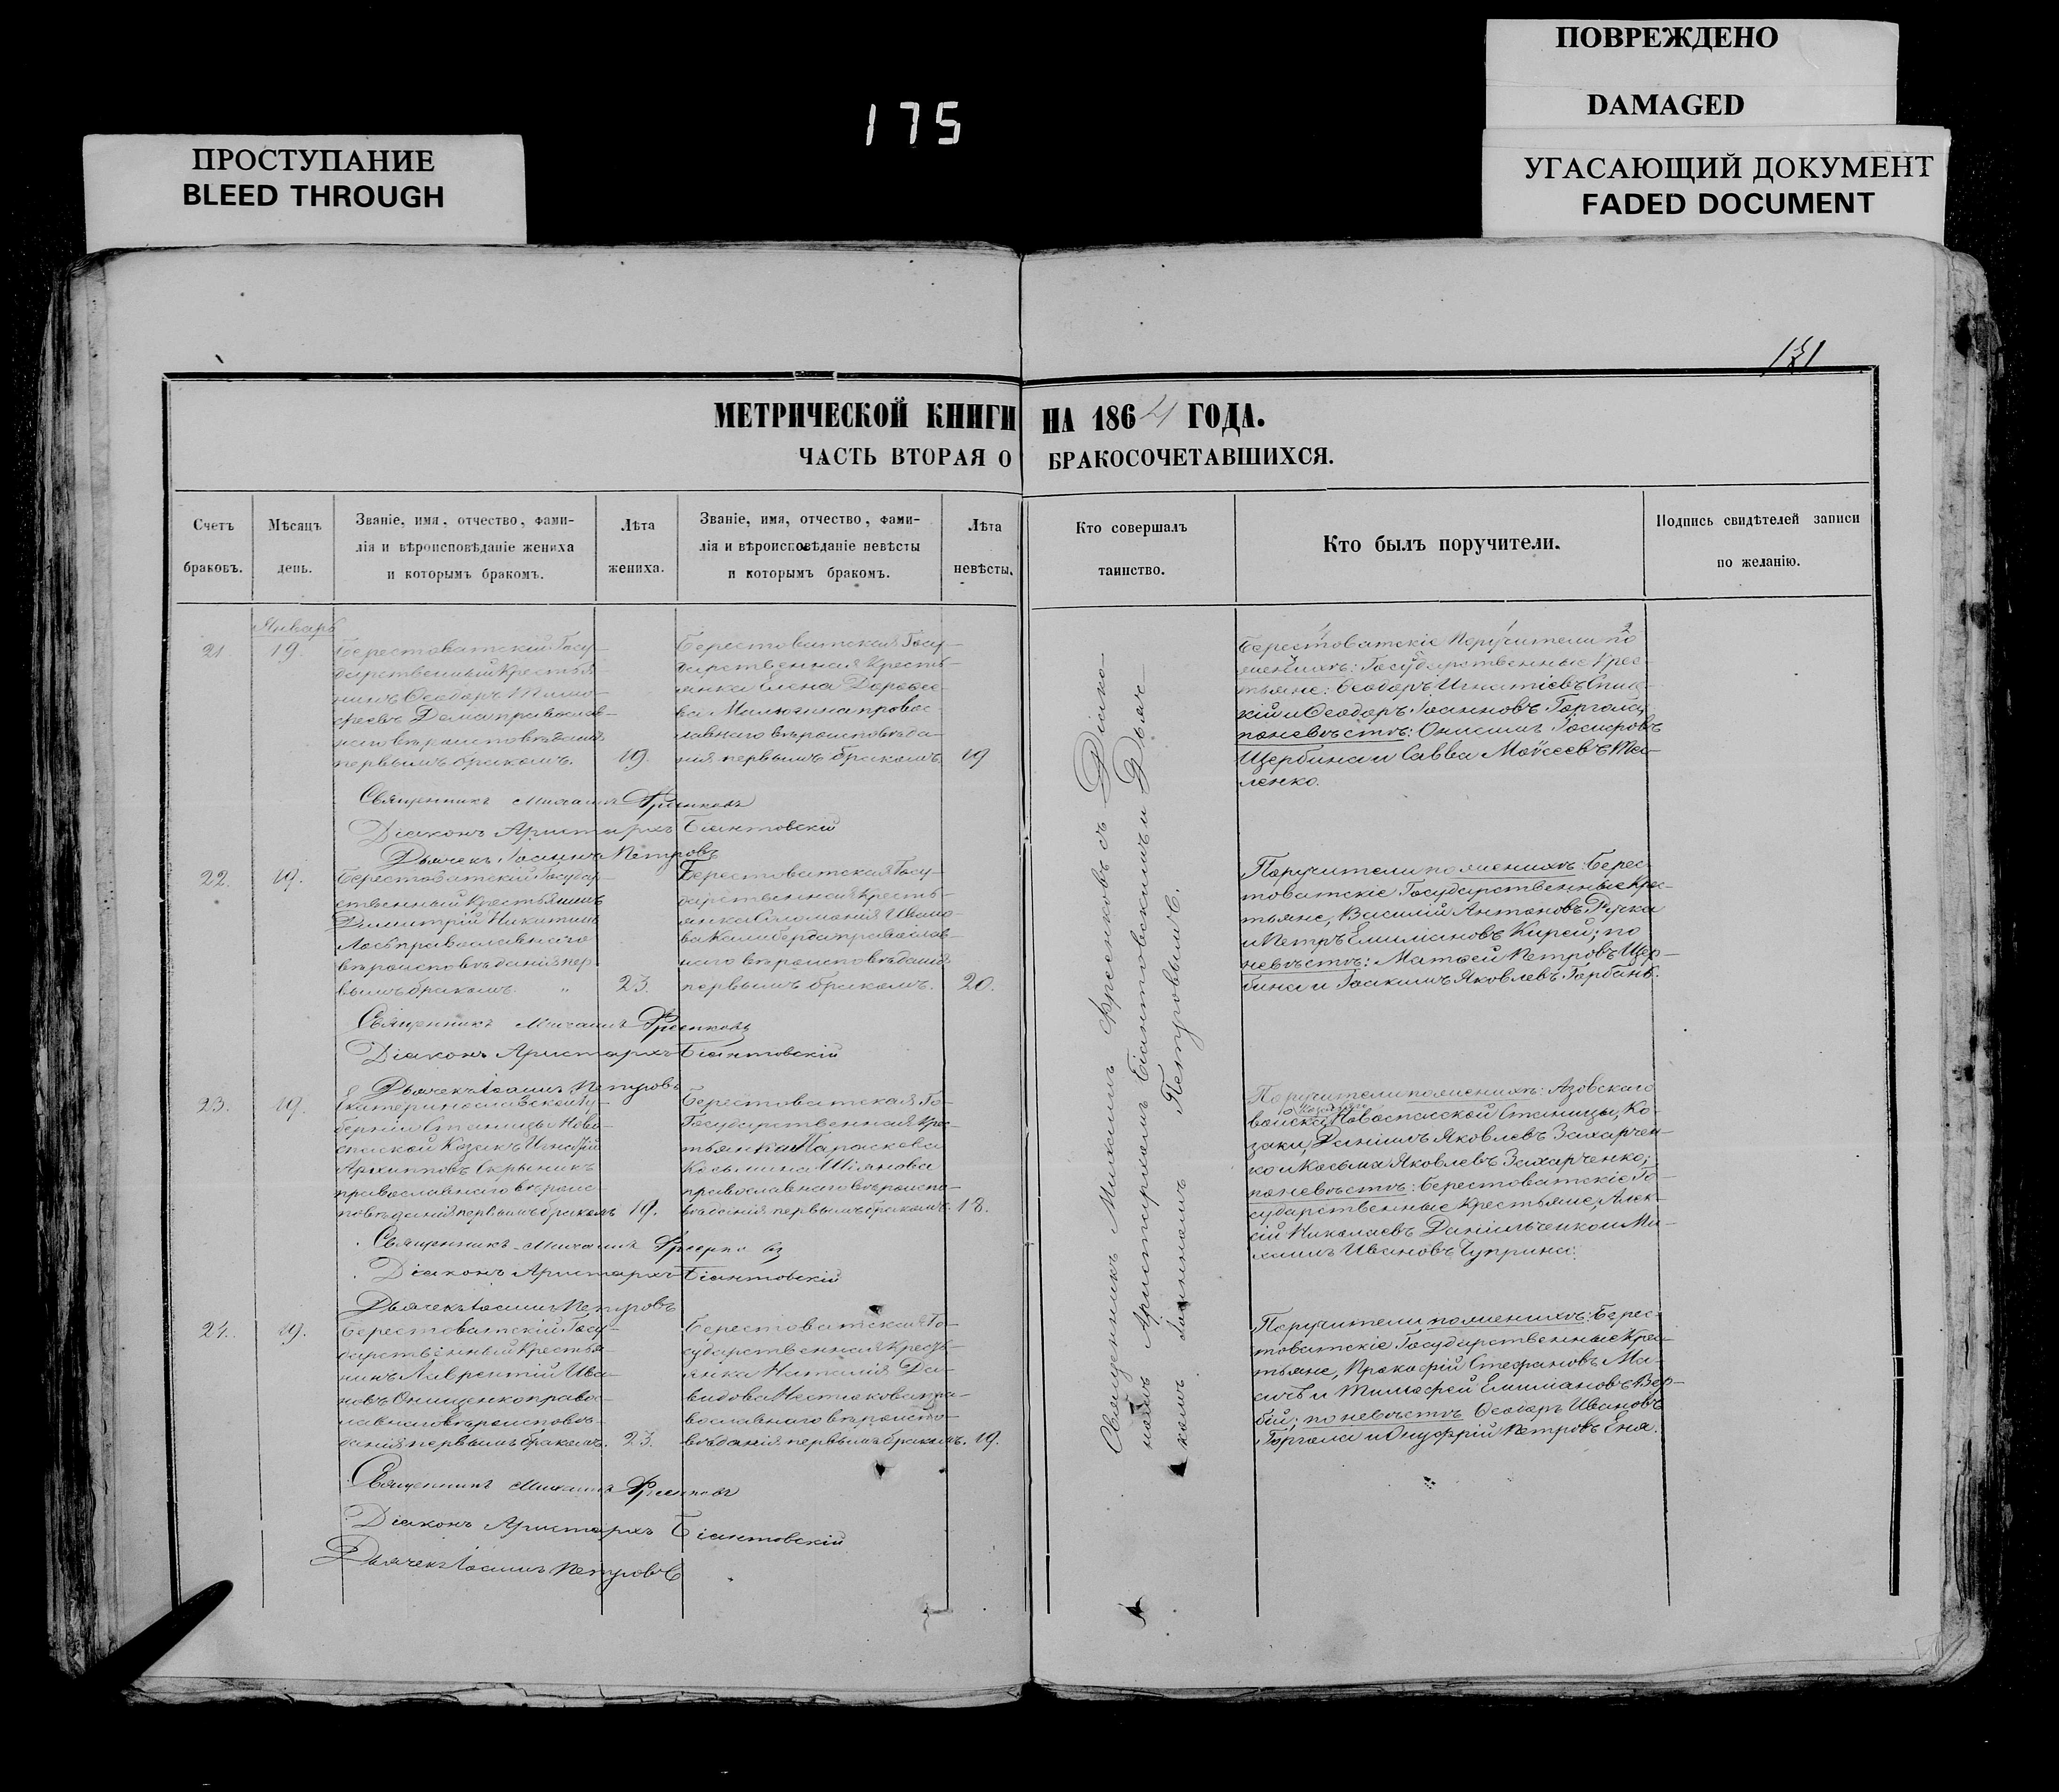 ПОВРЕЖДЕНО
DAMAGED
УГАСАЮЩИЙ ДОКУМЕНТ
FADED DOCUMENT
ПРОСТУПАНИЕ
BLEED THROUGH
175
171
МЕТРИЧЕСКОЙ КНИГИ НА 1864 ГОДА.
ЧАСТЬ ВТОРАЯ О БРАКОСОЧЕТАВШИХСЯ.
Счетъ
браковъ.
Мѣсяцъ
день.
Званіе, имя, отчество, фами-
лія и вѣроисповѣданіе жениха
и которымъ бракомъ.
Лѣта
жениха.
Званіе, имя, отчество, фами-
лія и вѣроисповѣданіе невѣсты
и которымъ бракомъ.
Лѣта
невѣсты.
Кто совершалъ
таинство.
Кто былъ поручители.
Подпись свидѣтелей записи
по желанію.
Январь
21.
19.
Берестоватскій Госу-
дарственный Крестья
нинъ Ѳеодоръ Тимо-
ѳеевъ Дема православ-
наго вѣроисповѣданія
первымъ бракомъ.
19.
Берестоватская Госу-
дарственная Кресть-
янка Елена Дороѳее-
ва Милютина правос-
лавнаго вѣроисповѣда-
нія первымъ бракомъ
19
Берестоватскіе Поручители по
женихѣ: Государственные Крес-
тьяне: Ѳеодоръ Игнатіевъ
кій и Ѳеодоръ Іоанновъ Горгола,
по невѣстѣ: Онисимъ Іосифовъ
Щербина и Савва Моѵсеевъ
ленко.
Священникъ Михаилъ Фрісенковъ
Діаконъ Аристархъ Біантовскій
Дьячекъ Іоаннъ Петровъ
22.
19.
Берестоватскій Государ-
ственный Крестьянинъ
Димитрій Никитинъ
Лось православнаго
вѣроисповѣданія пер-
вымъ бракомъ. "
23.
Берестоватская Госу-
дарственная Кресть-
янка Соломонія Ивано-
ва Калиберда православ-
наго вѣроисповѣданія
первымъ бракомъ.
20.
Поручители по женихѣ: Берес-
товатскіе Государственные Крес-
тьяне, Василій Антоновъ Ручка
и Петръ Емиліановъ Кирей; по
невѣстѣ: Матѳей Петровъ Щер-
бина и Іоакимъ Яковлевъ Горбань.
Священникъ Михаилъ Фрісенковъ
Діаконъ Аристархъ Біантовскій
Дьячекъ Іоаннъ Петровъ
23.
19.
Екатеринославской Гу-
берніи Станицы Ново-
спаской Козакъ Игнатій
Архиповъ Скрыникъ
православнаго вѣроис-
повѣданія первымъ бракомъ
19.
Берестоватская Го-
Государственная Крес-
тьянка Параскева
Косьмина Шіянова
православнаго вѣроиспо-
вѣданія первымъ бракомъ.
18.
Поручители по женихѣ: Азовскаго
Козачьяго
войска, Новоспасской Станицы, Ко-
заки, Даніилъ Яковлевъ Захарчен-
ко и Косьма Яковлевъ Захарченко;
по невѣстѣ: Берестоватскіе Го-
сударственные Крестьяне, Алек-
сій Николаевъ Даніильченко и Ми-
хаилъ Ивановъ Чуприна.
Священникъ Михаилъ Фрісенковъ
Діаконъ Аристархъ Біантовскій
Дьячекъ Іоаннъ Петровъ
24.
19.
Берестоватскій Госу-
дарственный Крестья-
нинъ Лаврентій Ива-
новъ Онищенко правос-
лавнаго вѣроисповѣ-
данія первымъ бракомъ.
23.
Берестоватская Го-
сударственная Кресть-
янка Наталія Да-
видова пра-
вославнаго вѣроиспо-
вѣданія первымъ бракомъ.
19.
Поручители по женихѣ: Берес-
товатскіе Государственные Крес-
тьяне, Прокофій Стефановъ
и Тимофей Емиліановъ
бій; по невѣстѣ Ѳеодоръ Ивановъ
Горгола и Онуфрій Петровъ Еня.
Священникъ Михаилъ Фрісенковъ
Діаконъ Аристархъ Біантовскій
Дьячекъ Іоаннъ Петровъ
Священникъ Михаилъ Фрісенковъ съ Діако-
номъ Аристархомъ Біантовскимъ и Дьяч-
комъ Іоанномъ Петровымъ.